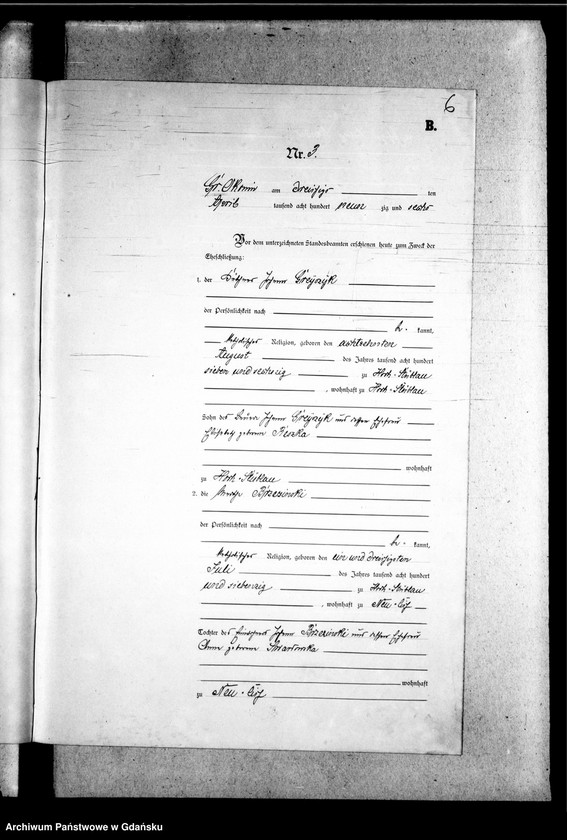 6
B.
Nr. 3.
Gr. Okonin am dreissigsten
April tausend acht hundert neun zig und sechs
Vor dem unterzeichneten Standesbeamten erschienen heute zum Zweck der
Eheschließung:
1. der Johann Grejczyk
der Persönlichkeit nach
be kannt,
katholischer Religion, geboren den achtzehnten
August des Jahres tausend acht hundert
sieben und sechszig zu Hoch-Stüblau
, wohnhaft zu Hoch-Stüblau
Sohn des Johann Grejczyk und dessen Ehefrau
Elisabeth geborene
wohnhaft
zu Hoch-Stüblau
2. die Brzezinski
der Persönlichkeit nach
be kannt,
katholischer Religion, geboren den ein und dreissigsten
Juli des Jahres tausend acht hundert
und siebenzig zu Hoch-Stüblau
, wohnhaft zu Neu-
Tochter des Johann Brzezinski und dessen Ehefrau
Anna geborene
wohnhaft
zu Neu-
Archiwum Państwowe w Gdańsku